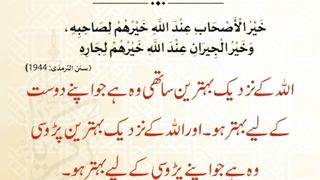 خَيْرُ الْأَصْحَابِ عِنْدَ اللَّهِ خَيْرُهُمْ لِصَاحِبِهِ،
وَخَيْرُ الْجِيرَانِ عِنْدَ اللَّهِ خَيْرُهُمْ لِجَارِهِ
(سنن الترمذی: 1944)
اللہ کے نزدیک بہترین ساتھی وہ ہے جو اپنے دوست
کے لیے بہتر ہو۔ اور اللہ کے نزدیک بہترین پڑوسی
وہ ہے جو اپنے پڑوسی کے لیے بہتر ہو۔